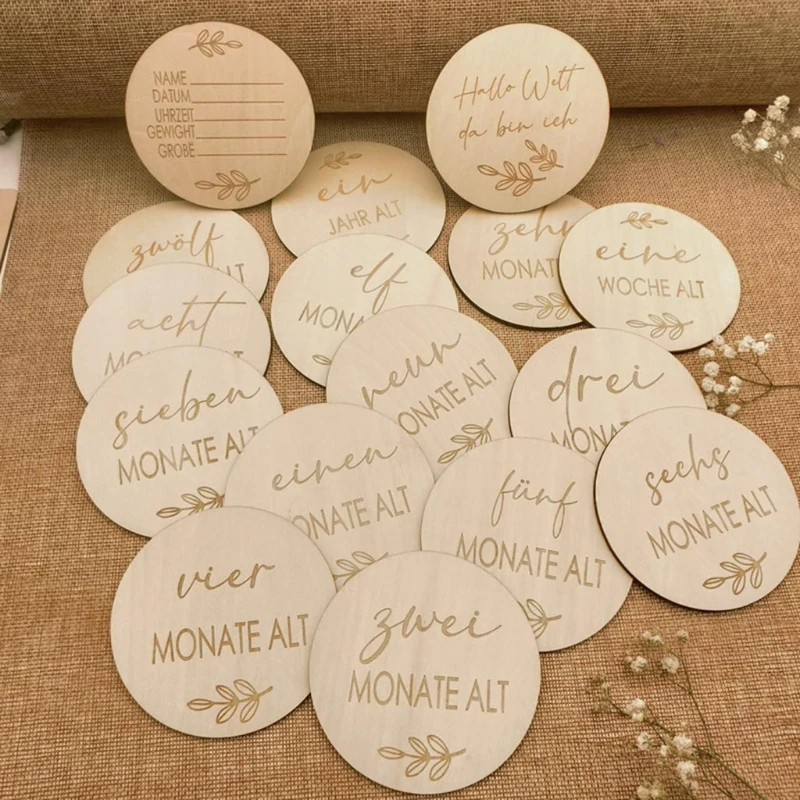 NAME
DATUM
UHRZEIT
GEWIGHT
GROBE
Hallo Welt
da bin ich
ein
JAHR ALT
zwölf
LT
zehn
MONAT
eine
WOCHE ALT
elf
MONA
acht
MO
neun
ONATE ALT
drei
MONAT
sieben
MONATE ALT
einen
ONATE ALT
fünf
MONATE ALT
sechs
MONATE ALT
vier
MONATE ALT
zwei
MONATE ALT